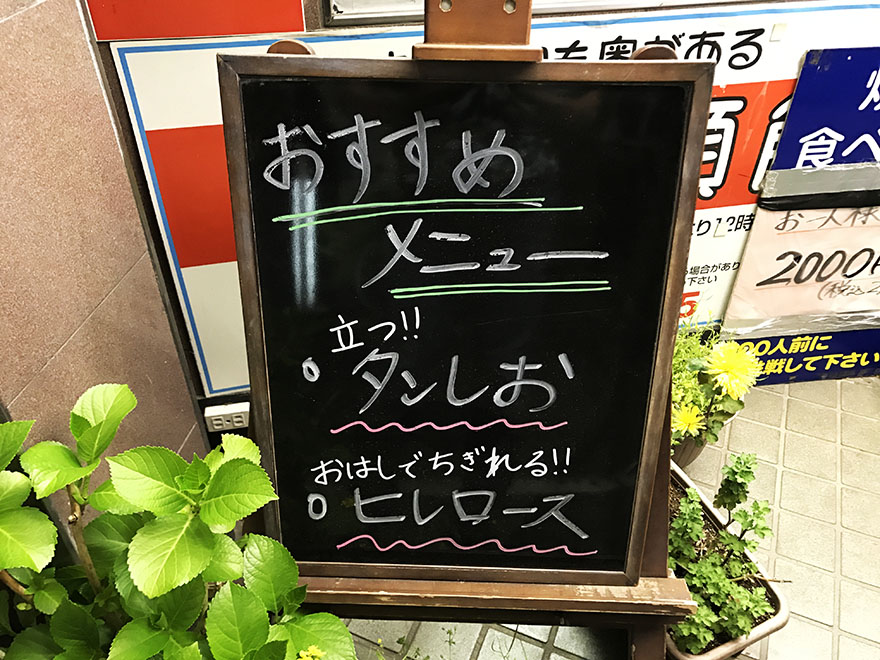 も奥がある
おすすめ
メニュー
立つ!!
タンしお
おはしでちぎれる!!
ヒレロース
食べ
お一人様
2000円
(税込
場合があり
下さい
00人前に
挑戦して下さい